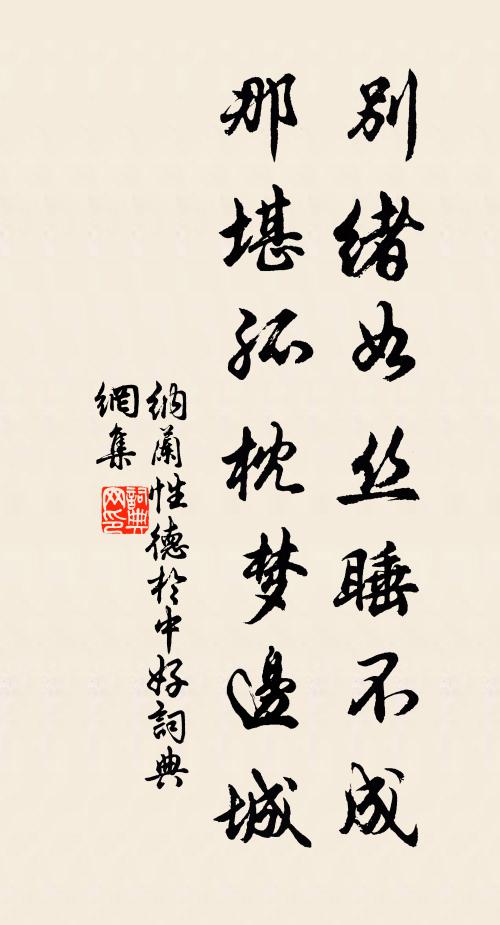 别绪如丝睡不成
那堪孤枕梦邊城
纳蘭性德於中好詞典
網集
詞典網印